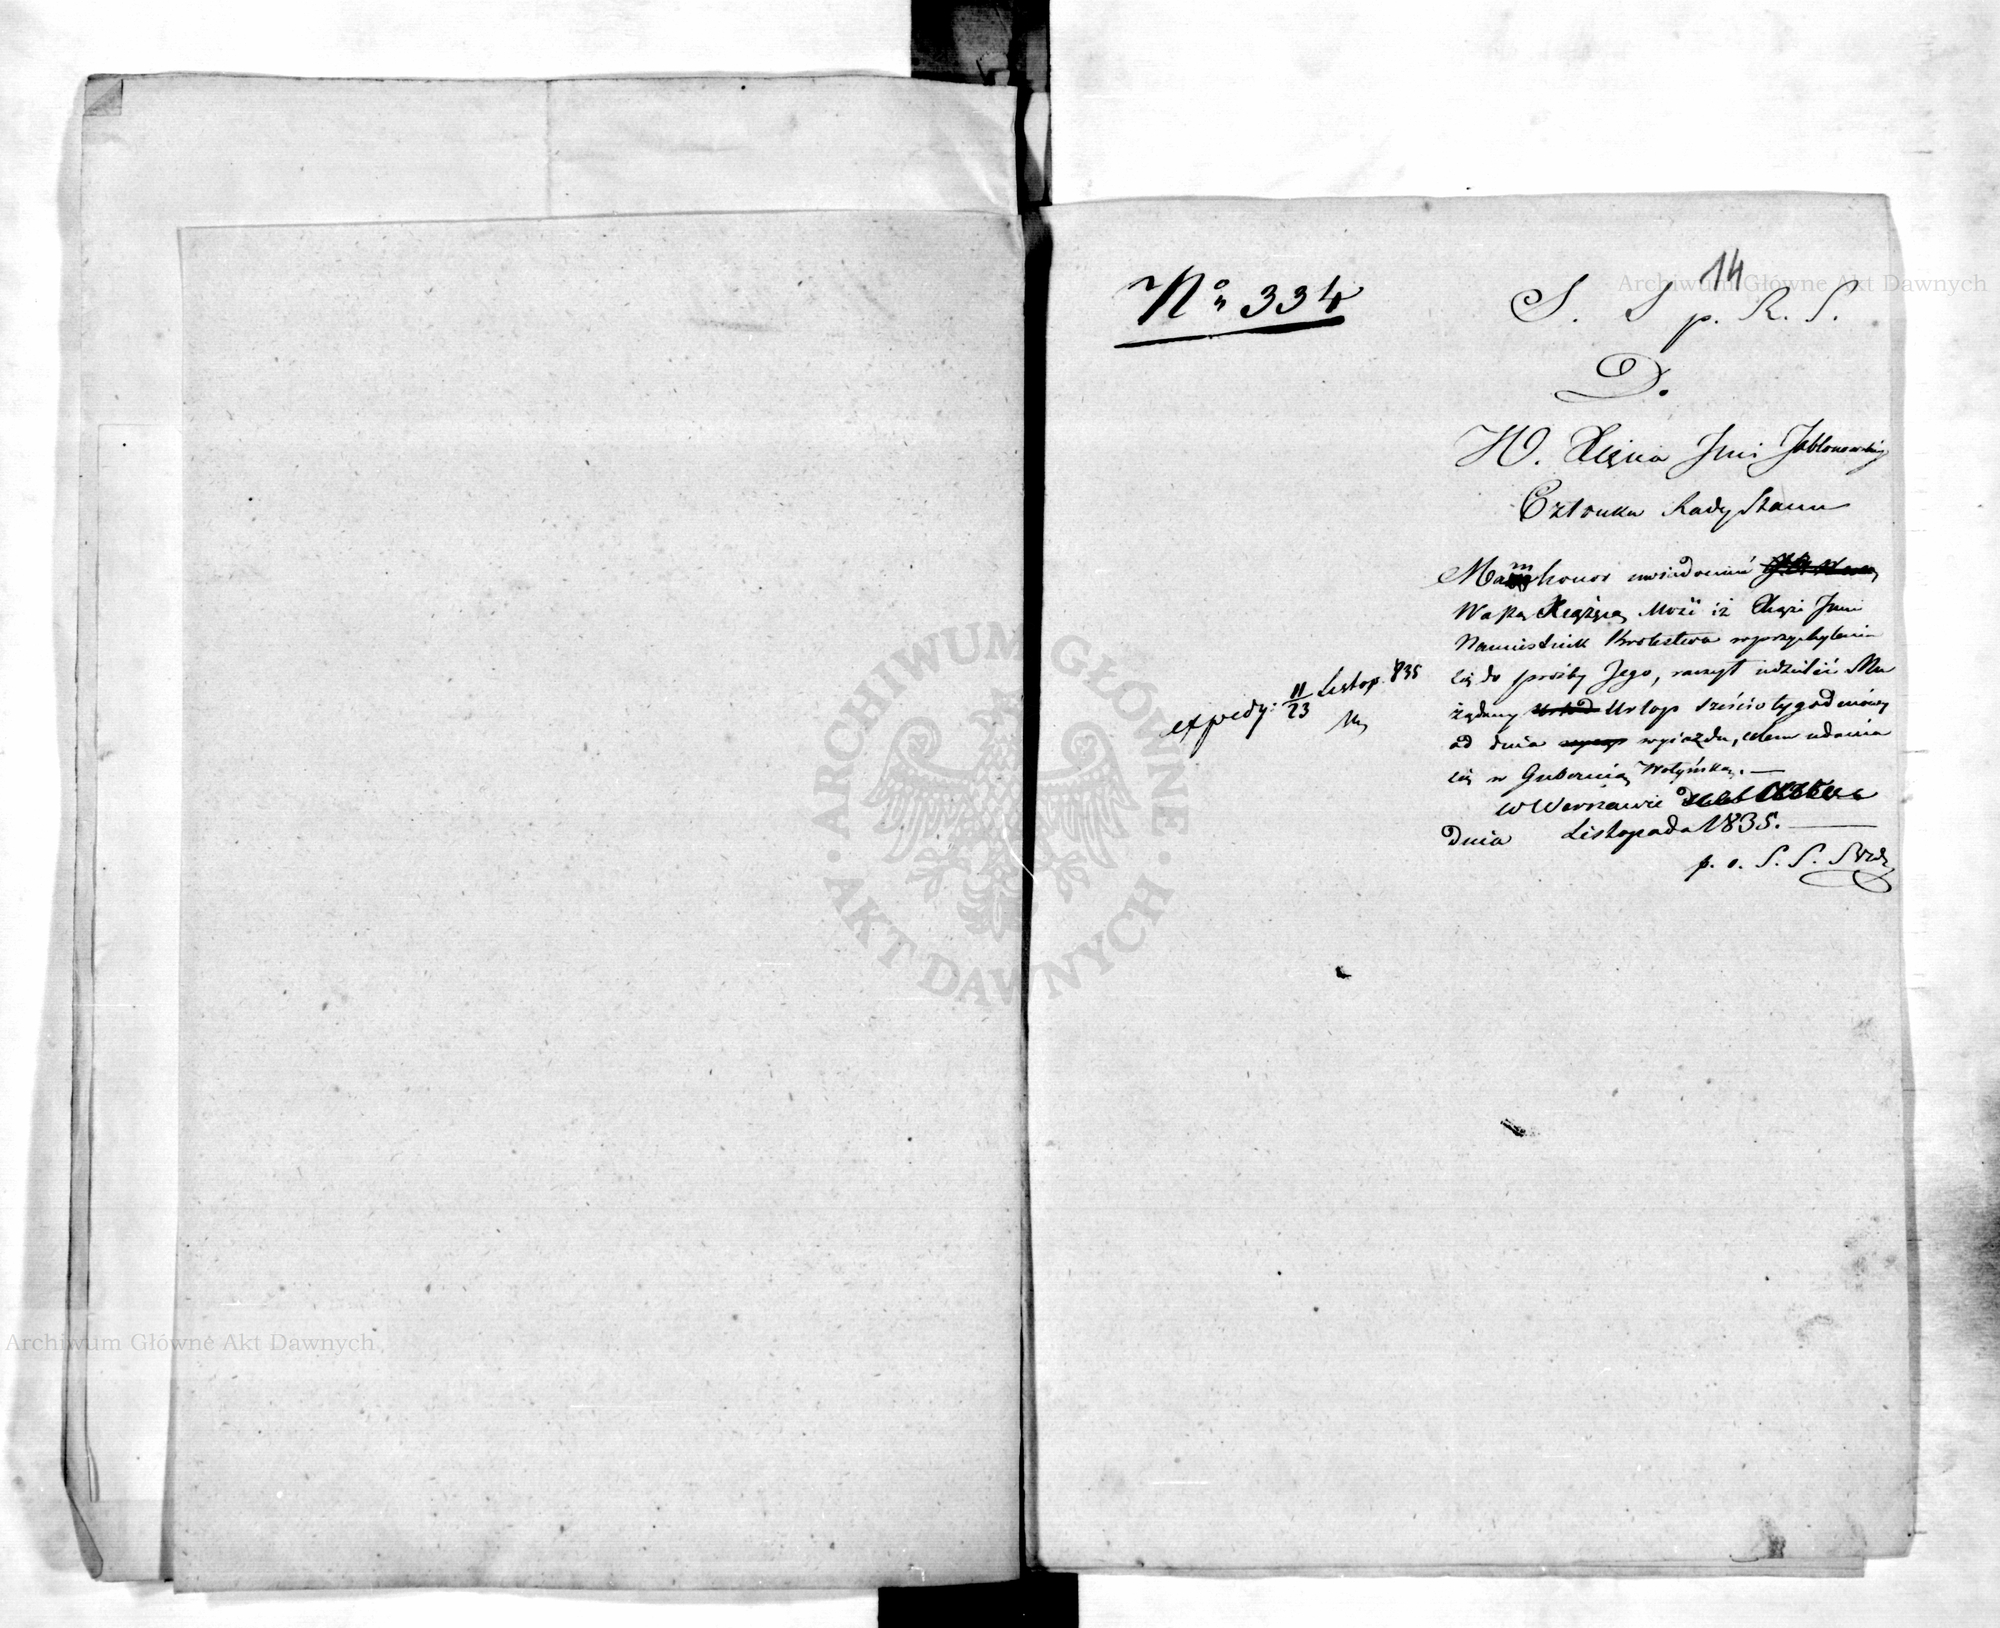 14
Nº 334
S. S p. R. S.
D.
W. Xięcia Jmci Jabłonowskiego
Członka Rady Stanu
Mam honor uwiadomić
Waszą Xiążęcą Mość iż Xiąże Jmci
Namiestnik Królestwa w przychyleniu
się do prośby Jego, raczył udzielić Mu
żądany Urlop sześciotygodniowy
od dnia wyiazdu, celem udania
się w Gubernią Wołyńską. —
w Warszawie
dnia Listopada 1835. —
p. o. S. S.
expedy: 11/23 Listop. 835
Archiwum Główne Akt Dawnych
Archiwum Główne Akt Dawnych
ARCHIWUM GŁÓWNE
AKT DAWNYCH